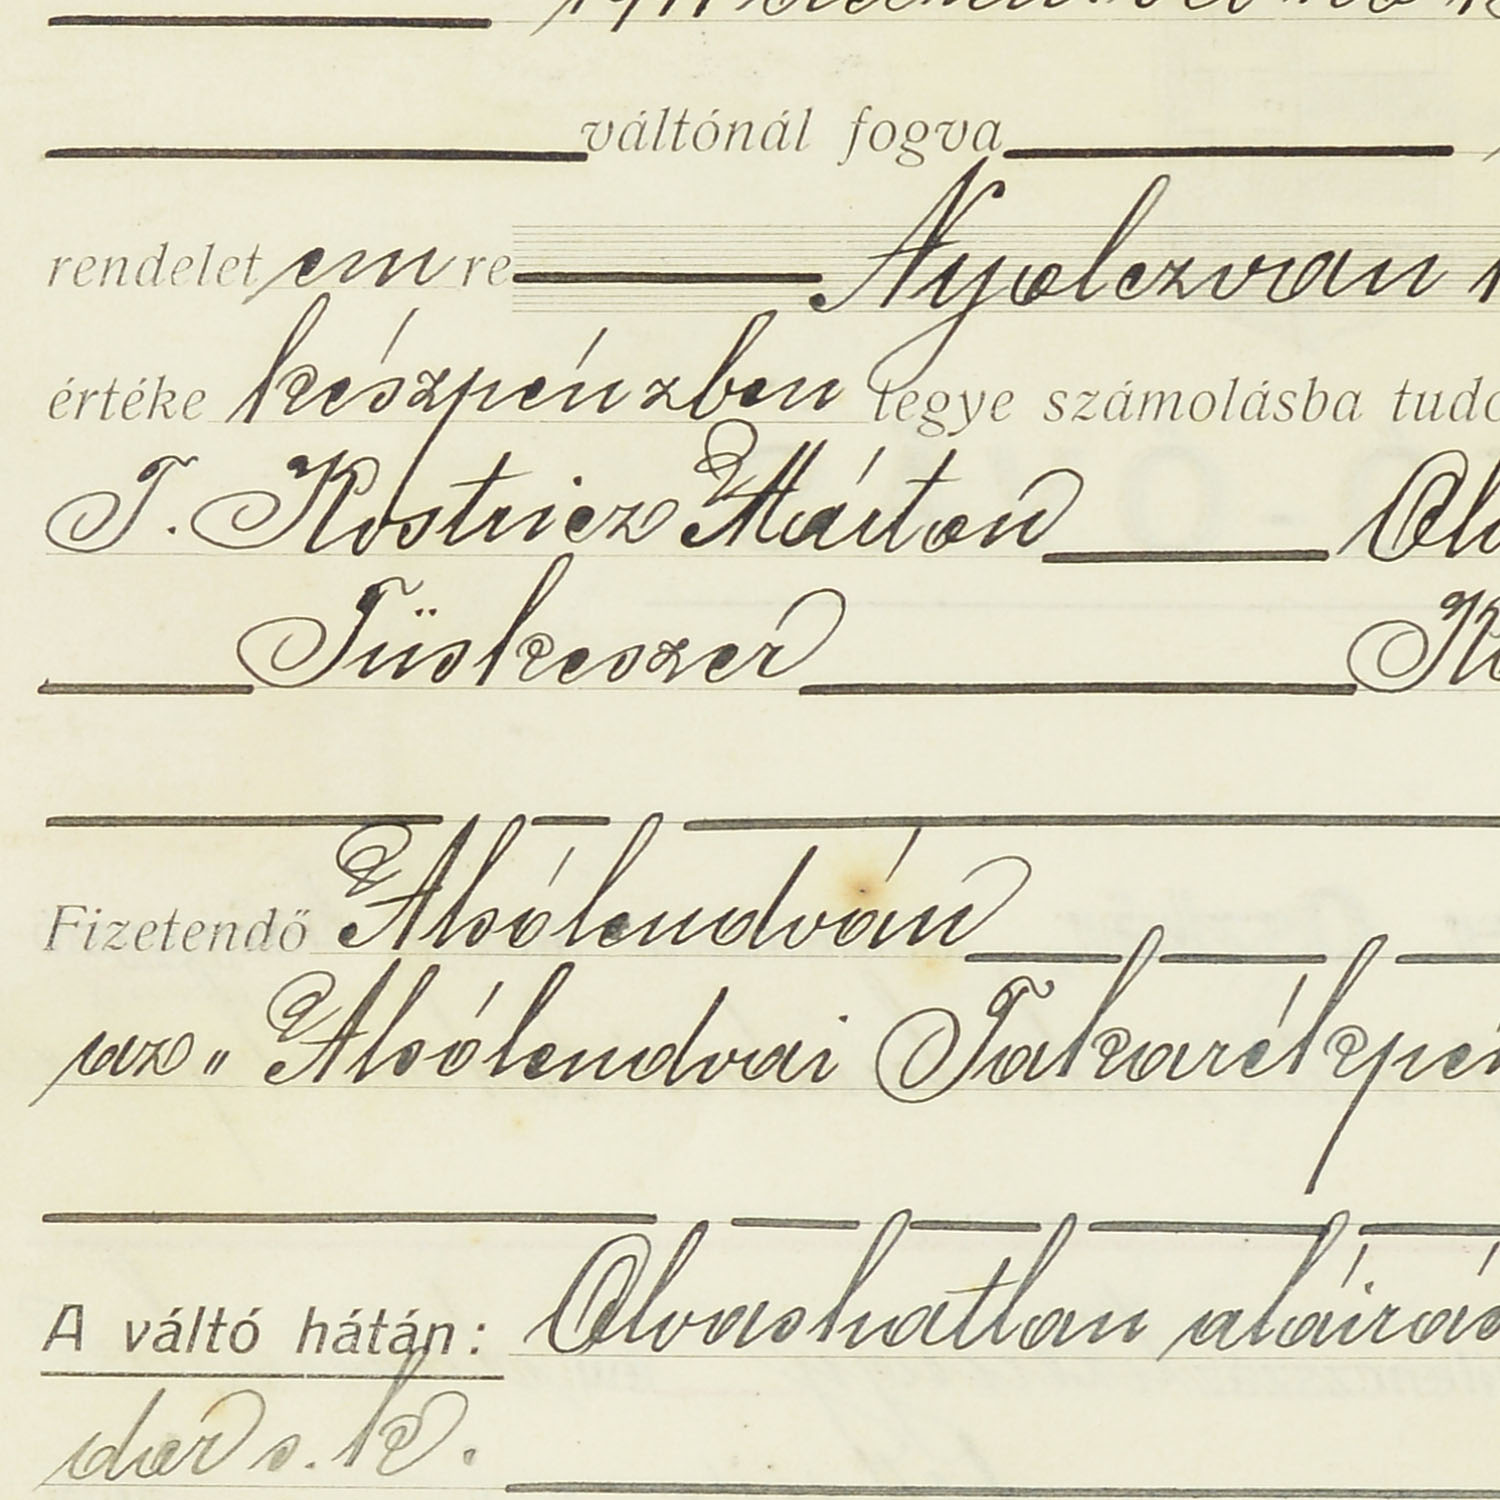 váltónál fogva
rendelet em re Nyolczvan
értéke készpénzben tegye számolásba
T. Kostricz Márton
Tüskeszer
Fizetendő Alsólendván
az „ Alsólendvai Takarékpén
A váltó hátán: Olvashatlan aláirás
dor s. k.